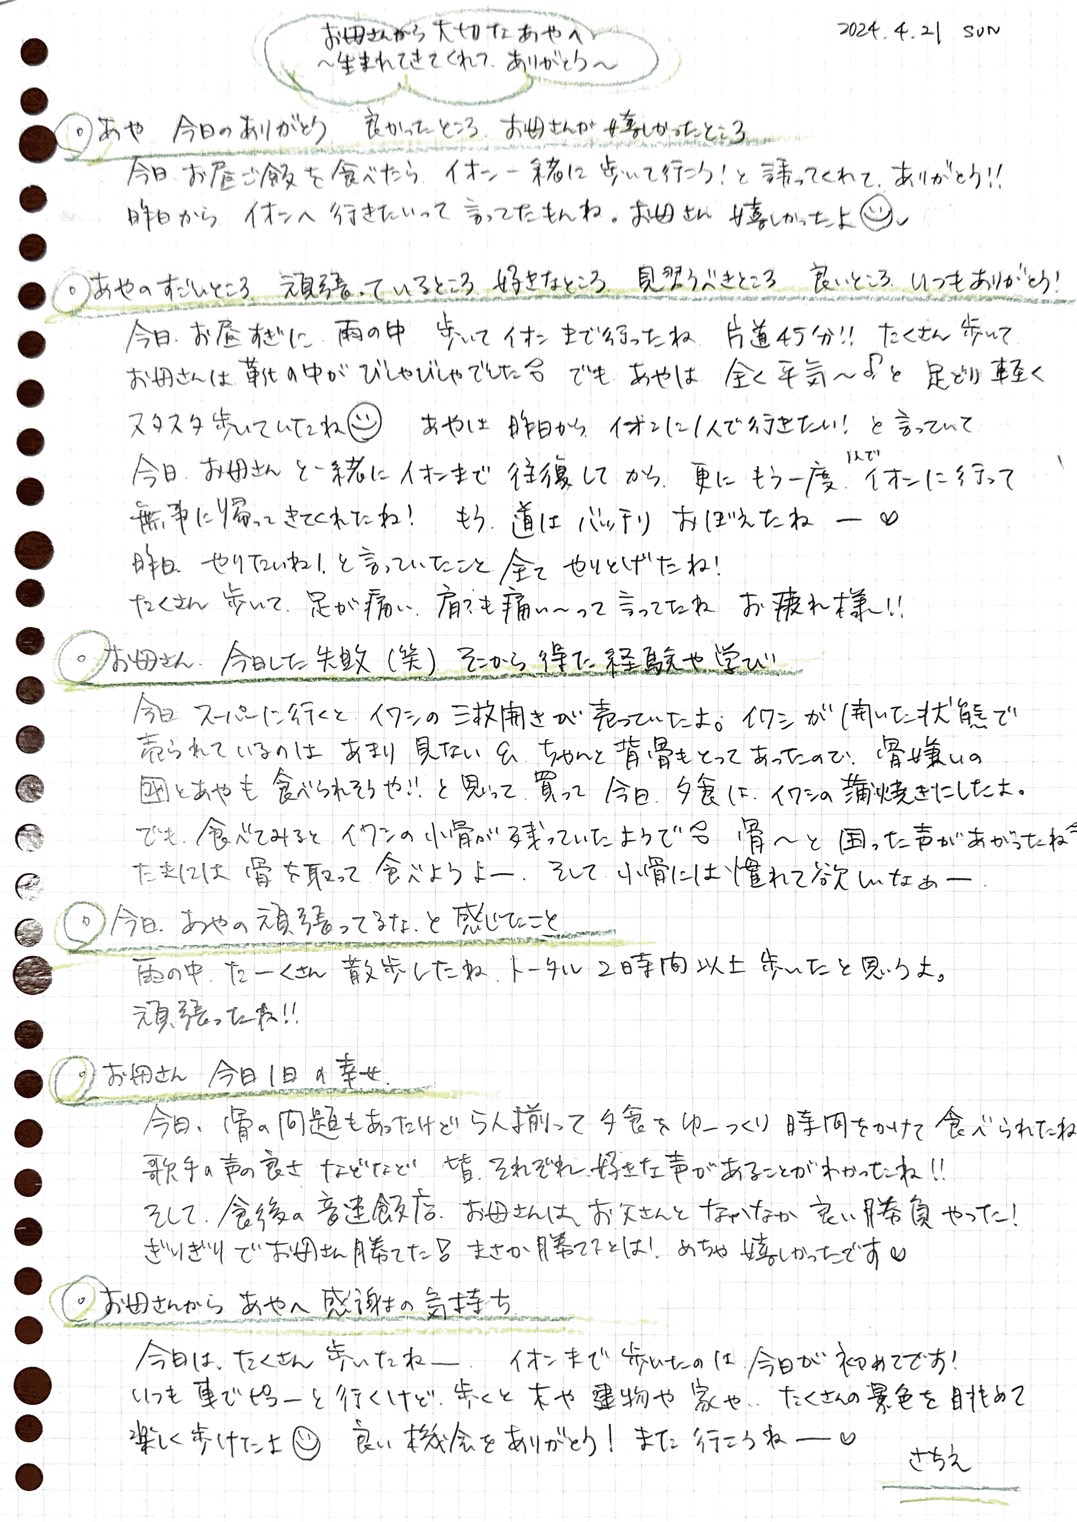 お母さんから 大切なあやへ
～生まれてきてくれて ありがとう～
2024.4.21 SUN
あや 今日のありがとう 良かったところ お母さんが嬉しかったところ
今日 お昼ご飯を食べたら イオン一緒に歩いて行こう!と誘ってくれて ありがとう!!
昨日から イオンへ行きたいって言ってたもんね。お母さん 嬉しかったよ
あやのすごいところ 頑張っているところ 好きなところ 見習うべきところ 良いところ いつもありがとう!
今日 お昼すぎに 雨の中 歩いてイオンまで行ったね 片道45分!! たくさん歩いて
お母さんは靴の中がびしゃびしゃでした でも あやは 全く平気～♪と 足どり軽く
スタスタ歩いていたね あやは 昨日から イオンに1人で行きたい! と言っていて
今日 お母さんと一緒にイオンまで 往復してから 更に もう一度 1人で イオンに行って
無事に帰ってきてくれたね! もう 道は バッチリ おぼえたねー♡
昨日 やりたいね!と言っていたこと 全て やりとげたね!
たくさん歩いて 足が痛い 肩も痛い～って言ってたね お疲れ様～!!
お母さん 今日した失敗(笑) そこから得た経験や学び
今日 スーパーに行くと イワシの三枚開きが売っていたよ。イワシが開いた状態で
売られているのは あまり見ない ちゃんと背骨もとってあったので 骨嫌いの
とあやも 食べられそうや!! と思って 買って 今日 夕食は イワシの蒲焼きにしたよ。
でも 食べてみると イワシの小骨が残っていたようで 骨～と 困った声があがったね
たまには 骨を取って 食べようよー そして 小骨には慣れて欲しいなぁー
今日 あやの頑張ってるな と感じたこと
雨の中 たーくさん散歩したね トータル2時間以上歩いたと思うよ。
頑張ったね!!
お母さん 今日1日の幸せ
今日、骨の問題もあったけど 5人揃って 夕食を ゆーっくり 時間をかけて食べられたね
歌手の声の良さ などなど 皆 それぞれ 好きな声があることがわかったね!!
そして 食後の 音速飯店 お母さんは お父さんと なかなか 良い勝負やった!
ぎりぎりでお母さん勝てた まさか勝てるとは! めちゃ嬉しかったです♡
お母さんから あやへ 感謝の気持ち
今日は、たくさん 歩いたねー イオンまで歩いたのは 今日が初めてです!
いつも車でピューと行くけど 歩くと 木や建物や家や‥ たくさんの景色を眺めて
楽しく歩けたよ 良い機会をありがとう! また行こうねー♡
さちえ